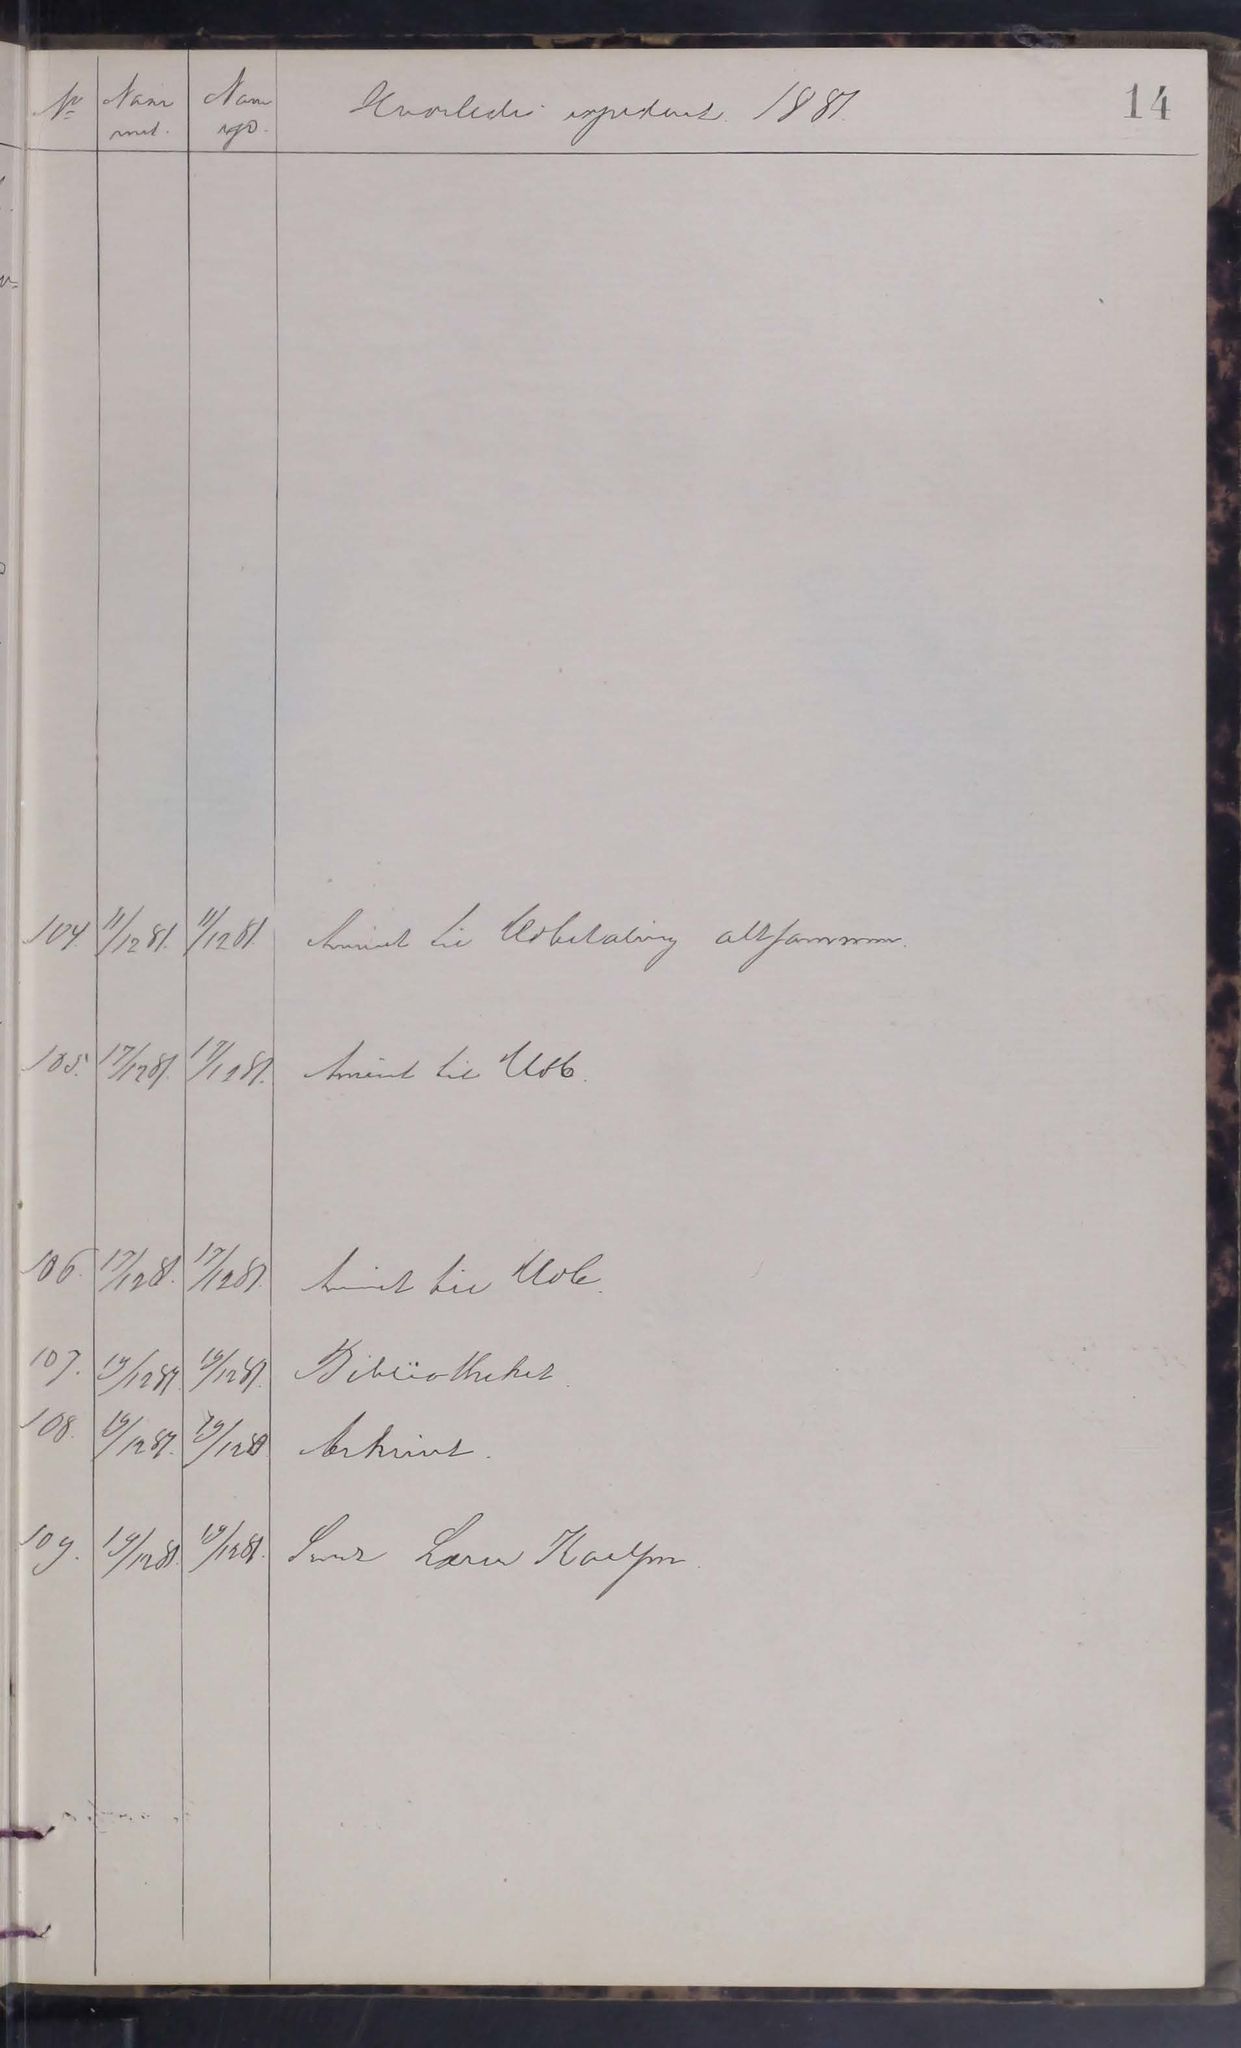 No Naar mod. Naar exp. Hvorledes expederet. 1881. 14
104. 11/12 81. 11/12 81. Amtet til Udbetaling altsammen.
105. 17/12 81. 17/12 81. Amtet til Udb.
106. 17/12 81. 17/12 81. Amtet til Udb.
107. 19/12 81. 19/12 81. Bibliotheket.
108. 19/12 81. 19/12 81 Arkivet.
109. 19/12 81. 19/12 81. Sendt Lærer